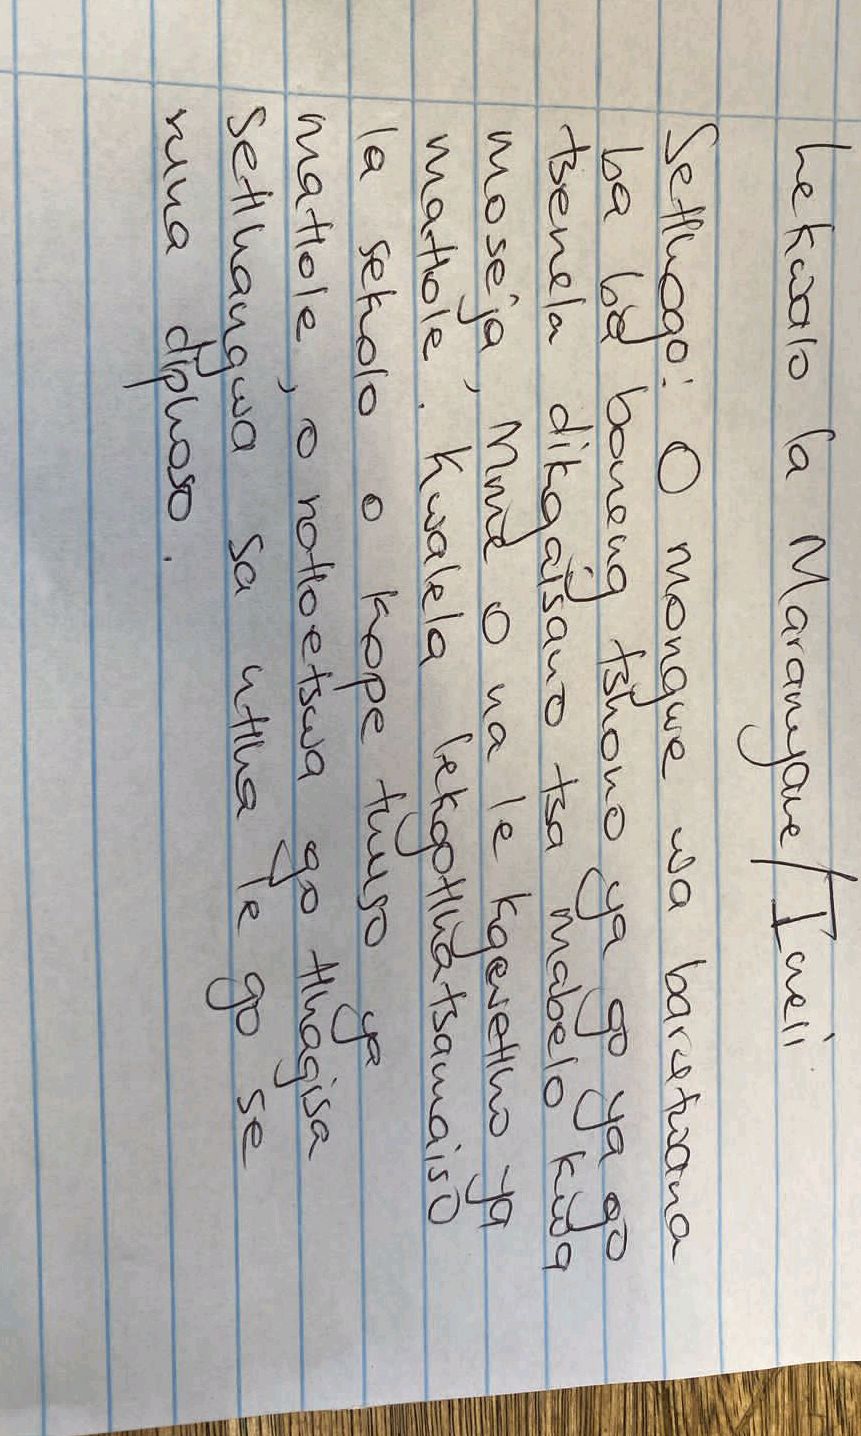 Lekwalo la Maranyane/Imeili
Setlhogo: O mongwe wa barutwana
ba ba boneng tshono ya go ya go
tsenela dikgaisano tsa mabelo kwa
moseja, Mme o na le kgwetlho ya
matlole. Kwalela lekgotlhatsamaiso
la sekolo o kope thuso ya
matlole, o notloetswa go tlhagisa
Setlhangwa sa ntlha le go se
runa diphoso.